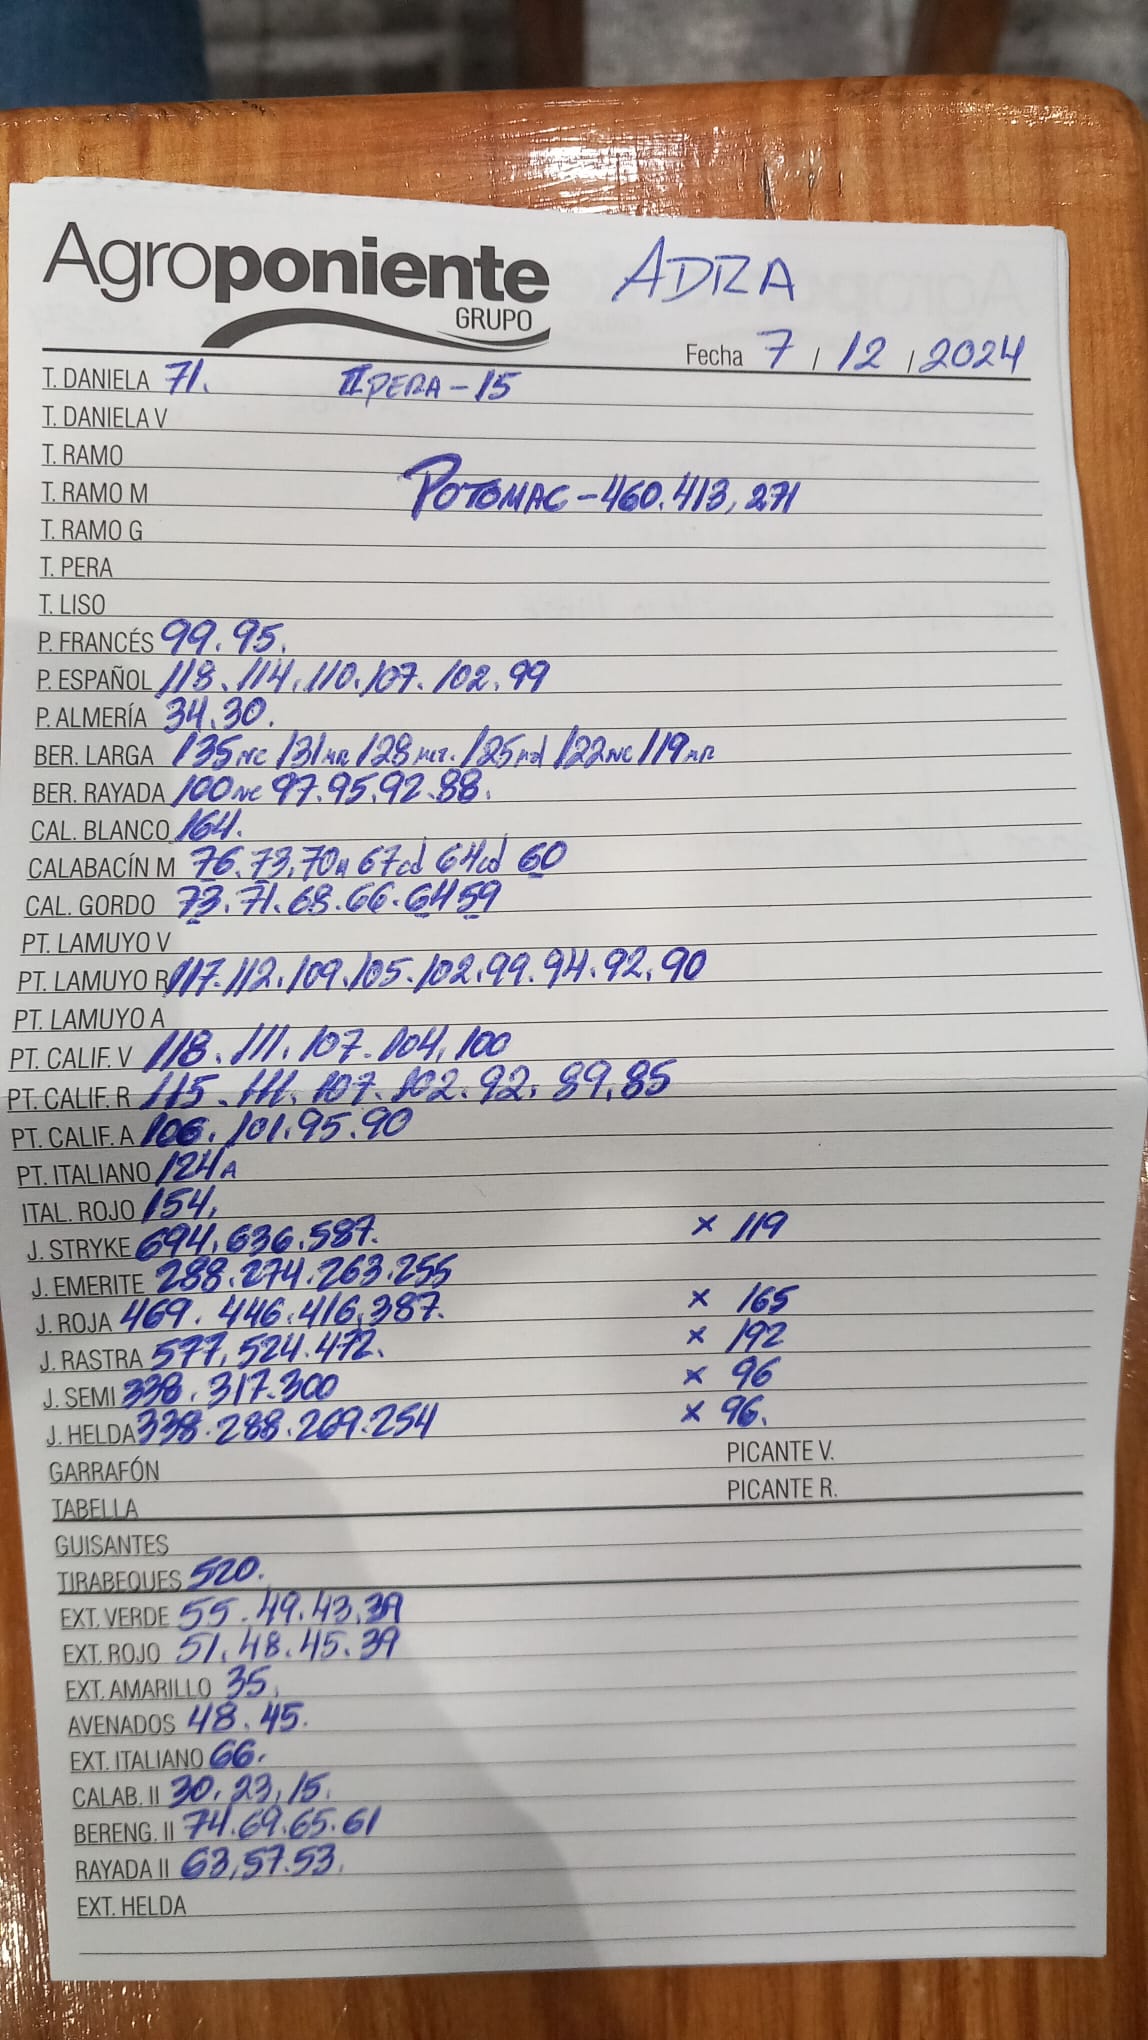 Agroponiente
GRUPO
ADRA
Fecha 7 / 12 / 2024
T. DANIELA 71. II PERA - 15
T. DANIELA V
T. RAMO
T. RAMO M POTOMAC - 460. 413, 271
T. RAMO G
T. PERA
T. LISO
P. FRANCÉS 99. 95.
P. ESPAÑOL 118. 114. 110. 107. 102. 99
P. ALMERÍA 34. 30.
BER. LARGA 135 NC 131 MR 128 128 125 122 NC 119 MR
BER. RAYADA 100 NC 97. 95. 92. 88.
CAL. BLANCO 164.
CALABACÍN M 76. 73. 70 67cd 64cd 60
CAL. GORDO 73. 71. 68. 66. 64 59
PT. LAMUYO V
PT. LAMUYO R 117. 112. 109. 105. 102. 99. 94. 92. 90
PT. LAMUYO A
PT. CALIF. V 118. 111. 107. 104. 100
PT. CALIF. R 115. 111. 107. 102. 92. 89. 85
PT. CALIF. A 106. 101. 95. 90
PT. ITALIANO 124 A
ITAL. ROJO 154,
J. STRYKE 694, 636. 587. x 119
J. EMERITE 288. 274. 263. 255
J. ROJA 469. 446. 416. 387. x 165
J. RASTRA 577, 524. 472. x 192
J. SEMI 338. 317. 300 x 96
J. HELDA 338. 288. 269. 254 x 96.
GARRAFÓN PICANTE V.
TABELLA PICANTE R.
GUISANTES
TIRABEQUES 520.
EXT. VERDE 55. 49. 43. 39
EXT. ROJO 51. 48. 45. 39
EXT. AMARILLO 35.
AVENADOS 48. 45.
EXT. ITALIANO 66.
CALAB. II 30. 23, 15.
BERENG. II 74. 69. 65. 61
RAYADA II 63, 57. 53.
EXT. HELDA